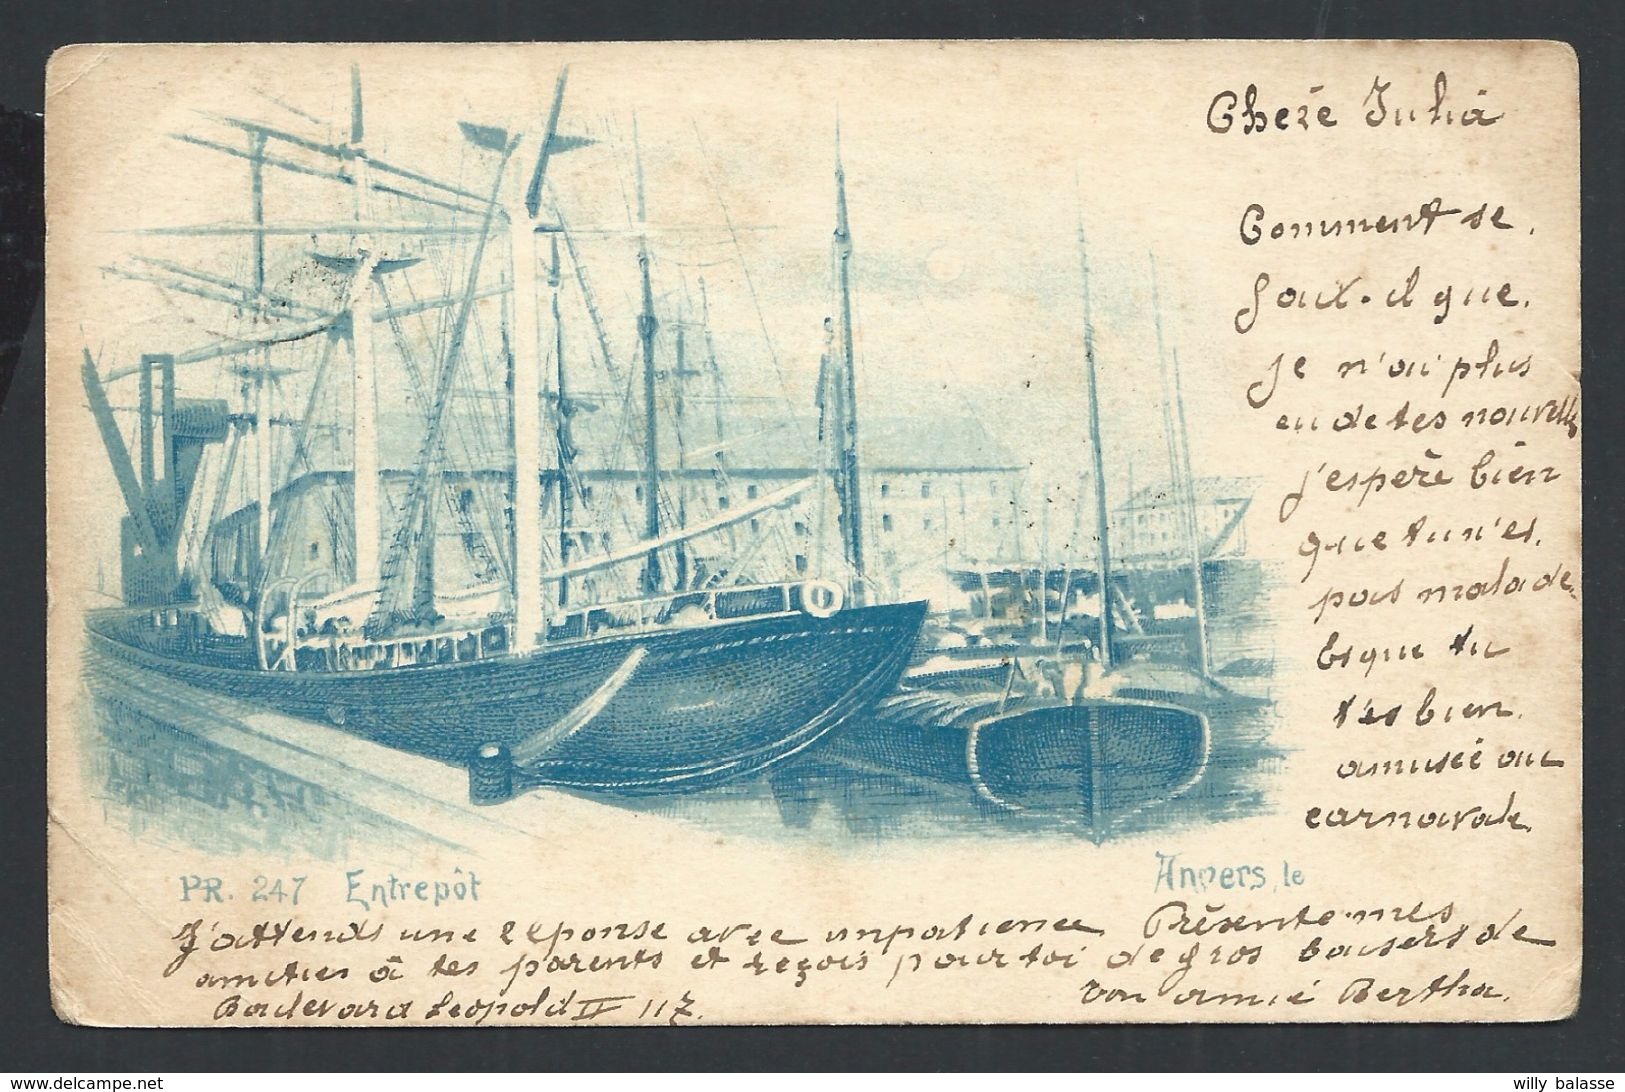 Cheré Julia
Comment se
faix-il que
je n'ai plus
eu de tes nouvelles
j'espère bien
que tu n'es
pas malade
et que tu
t'es bien
amusée au
carnavale
PR. 247 Entrepôt
Anvers, le
J'attends une réponse avec impatience Présente mes
amities à tes parents et reçois pour toi de gros baisers de
Boulevard Leopold II 117. ton amie Bertha.
willy balasse